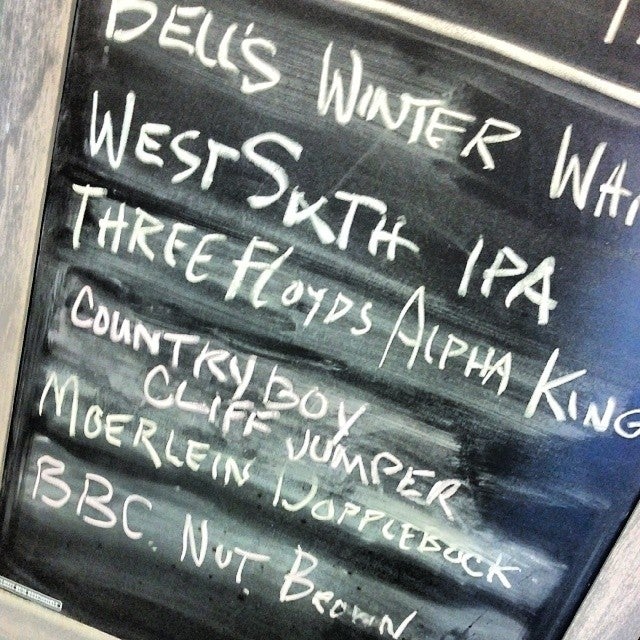 BELL'S WINTER
WEST SIXTH IPA
THREE FLOYDS ALPHA KING
COUNTRY BOY
CLIFF JUMPER
MOERLEIN DOPPLEBOCK
BBC. NUT BROWN